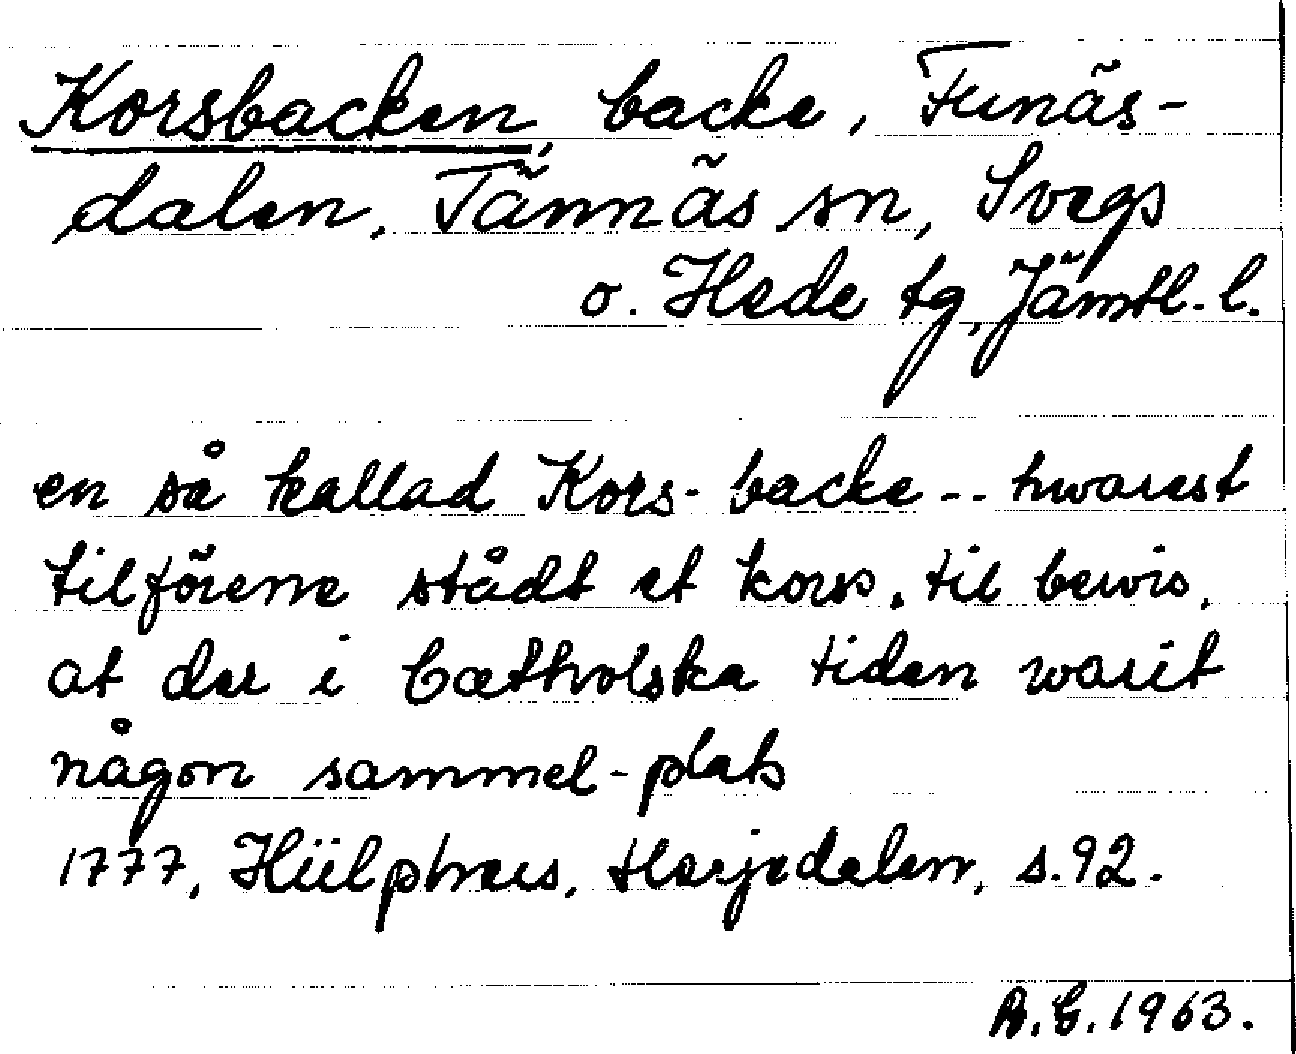 Korsbacken, backe, Funäs-
dalen, Tännäs sn, Svegs
o. Hede tg, Jämtl. l.
en så kallad Kors-backe -- hwarest
tilförene stådt et kors, til bewis,
at der i Catholska tiden warit
någon sammel-plats
1777, Hülphers, Herjedalen, s. 92.
B.E. 1963.